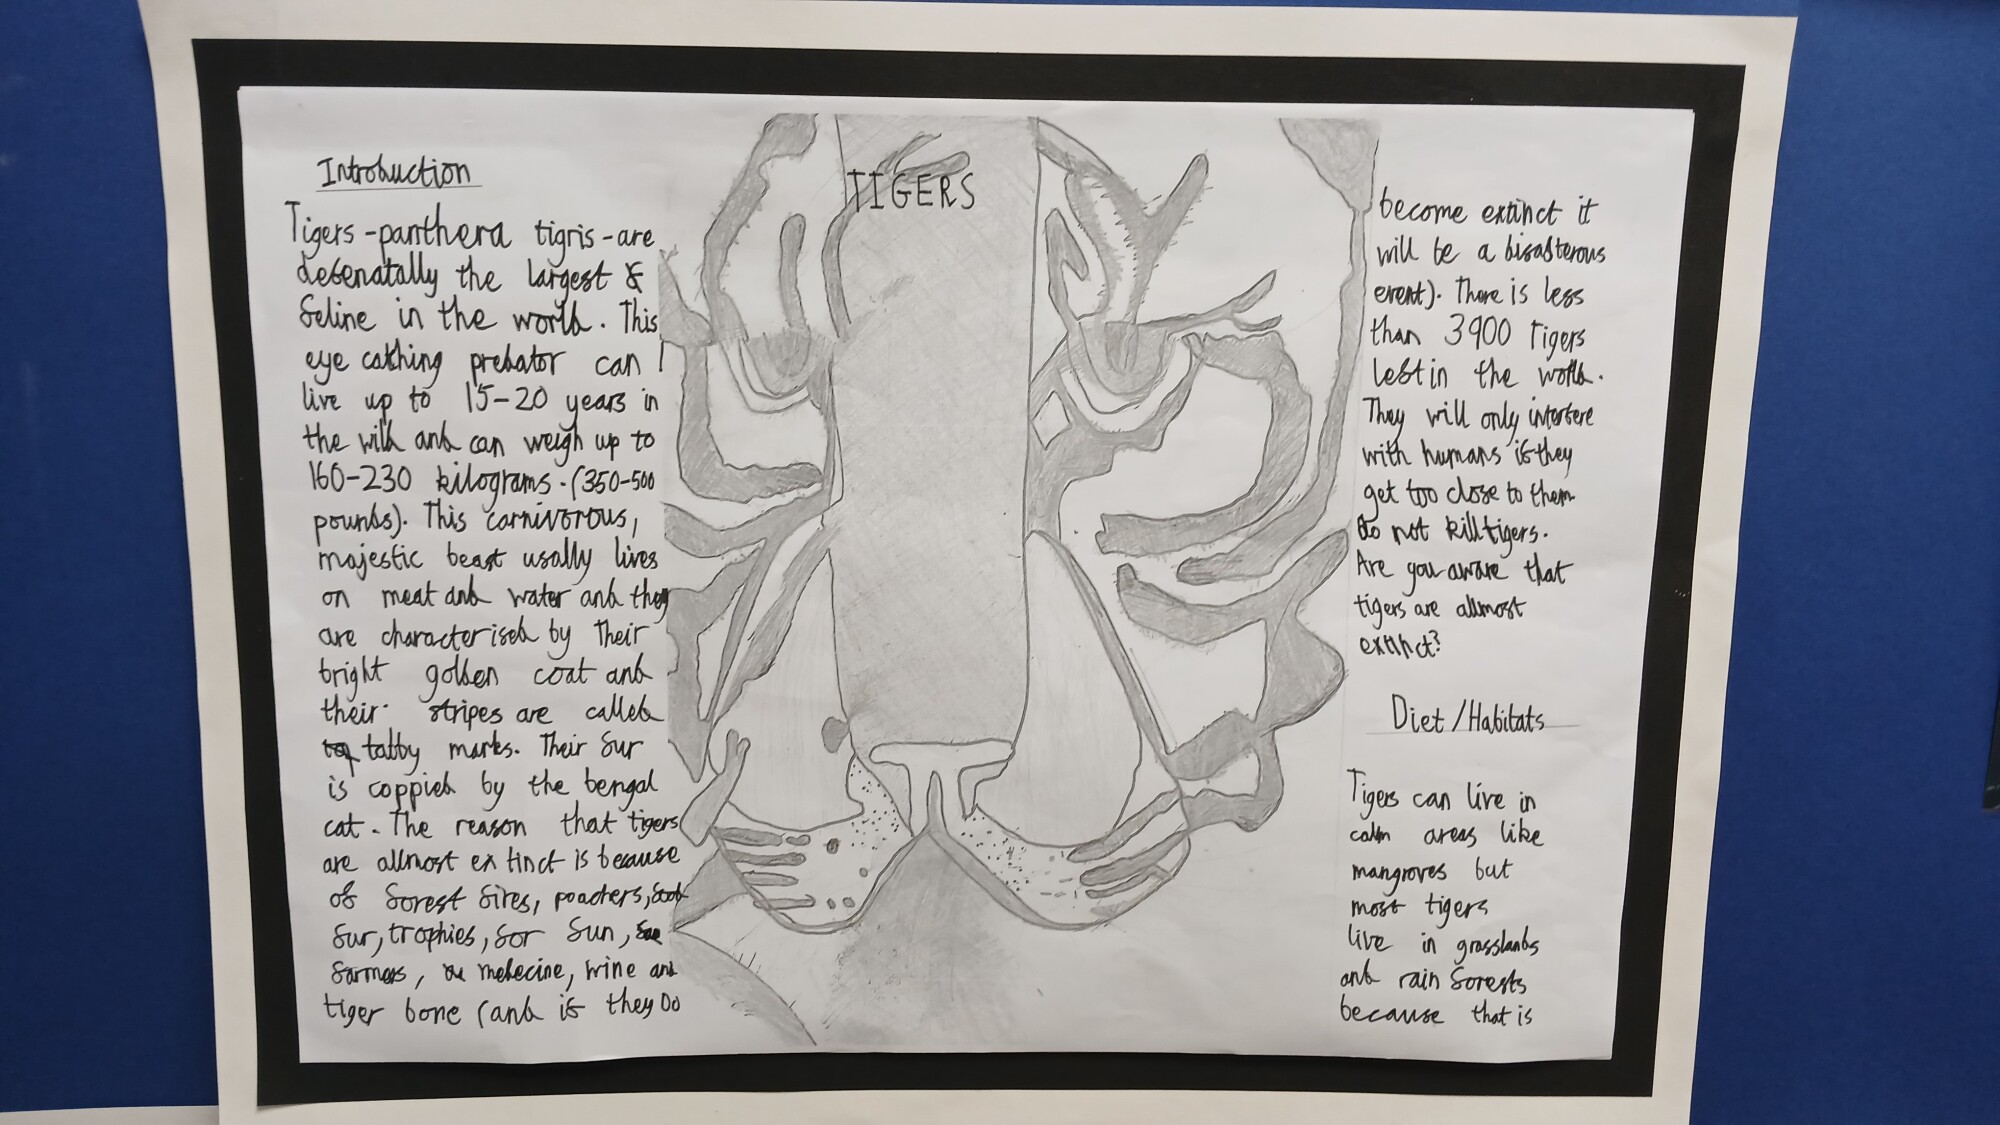 TIGERS
Introduction
Tigers - panthera tigris - are
defenatally the largest &
feline in the world. This
eye catching predator can
live up to 15-20 years in
the wild and can weigh up to
160-230 kilograms. (350-500
pounds). This carnivorous,
majestic beast usally lives
on meat and water and they
are characterised by Their
bright golden coat and
their stripes are called
tabby marks. Their fur
is coppied by the bengal
cat. The reason that tigers
are allmost extinct is because
of forest fires, poachers,
fur, trophies, for fun,
farmers, medecine, wine and
tiger bone (and if they Do
become extinct it
will be a disasterous
event). There is less
than 3900 Tigers
left in the world.
They will only interfere
with humans if they
get too close to them
Do not kill tigers.
Are you aware that
tigers are allmost
extinct?
Diet / Habitats
Tigers can live in
calm areas like
mangroves but
most tigers
live in grasslands
and rain forests
because that is